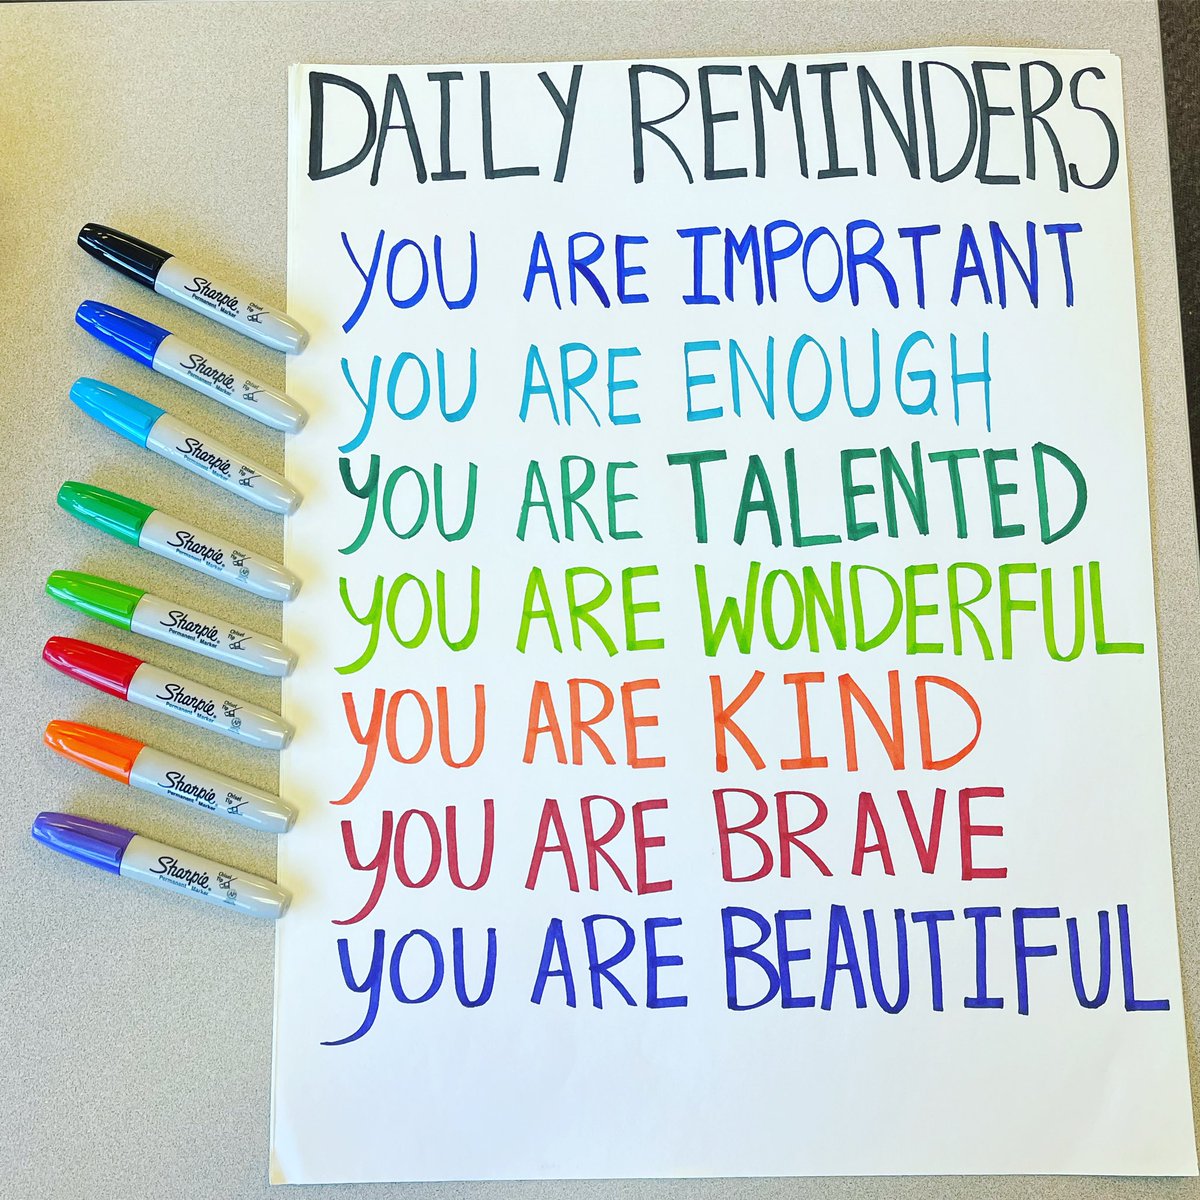 DAILY REMINDERS
YOU ARE IMPORTANT
YOU ARE ENOUGH
YOU ARE TALENTED
YOU ARE WONDERFUL
YOU ARE KIND
YOU ARE BRAVE
YOU ARE BEAUTIFUL
Sharpie
Permanent Marker
Chisel
Tip
Sharpie
Permanent Marker
Chisel
Tip
Sharpie
Permanent Marker
Chisel
Tip
Sharpie
Permanent Marker
Chisel
Tip
Sharpie
Permanent Marker
Chisel
Tip
Sharpie
Permanent Marker
Chisel
Tip
Sharpie
Permanent Marker
Chisel
Tip
Sharpie
Permanent Marker
Chisel
Tip